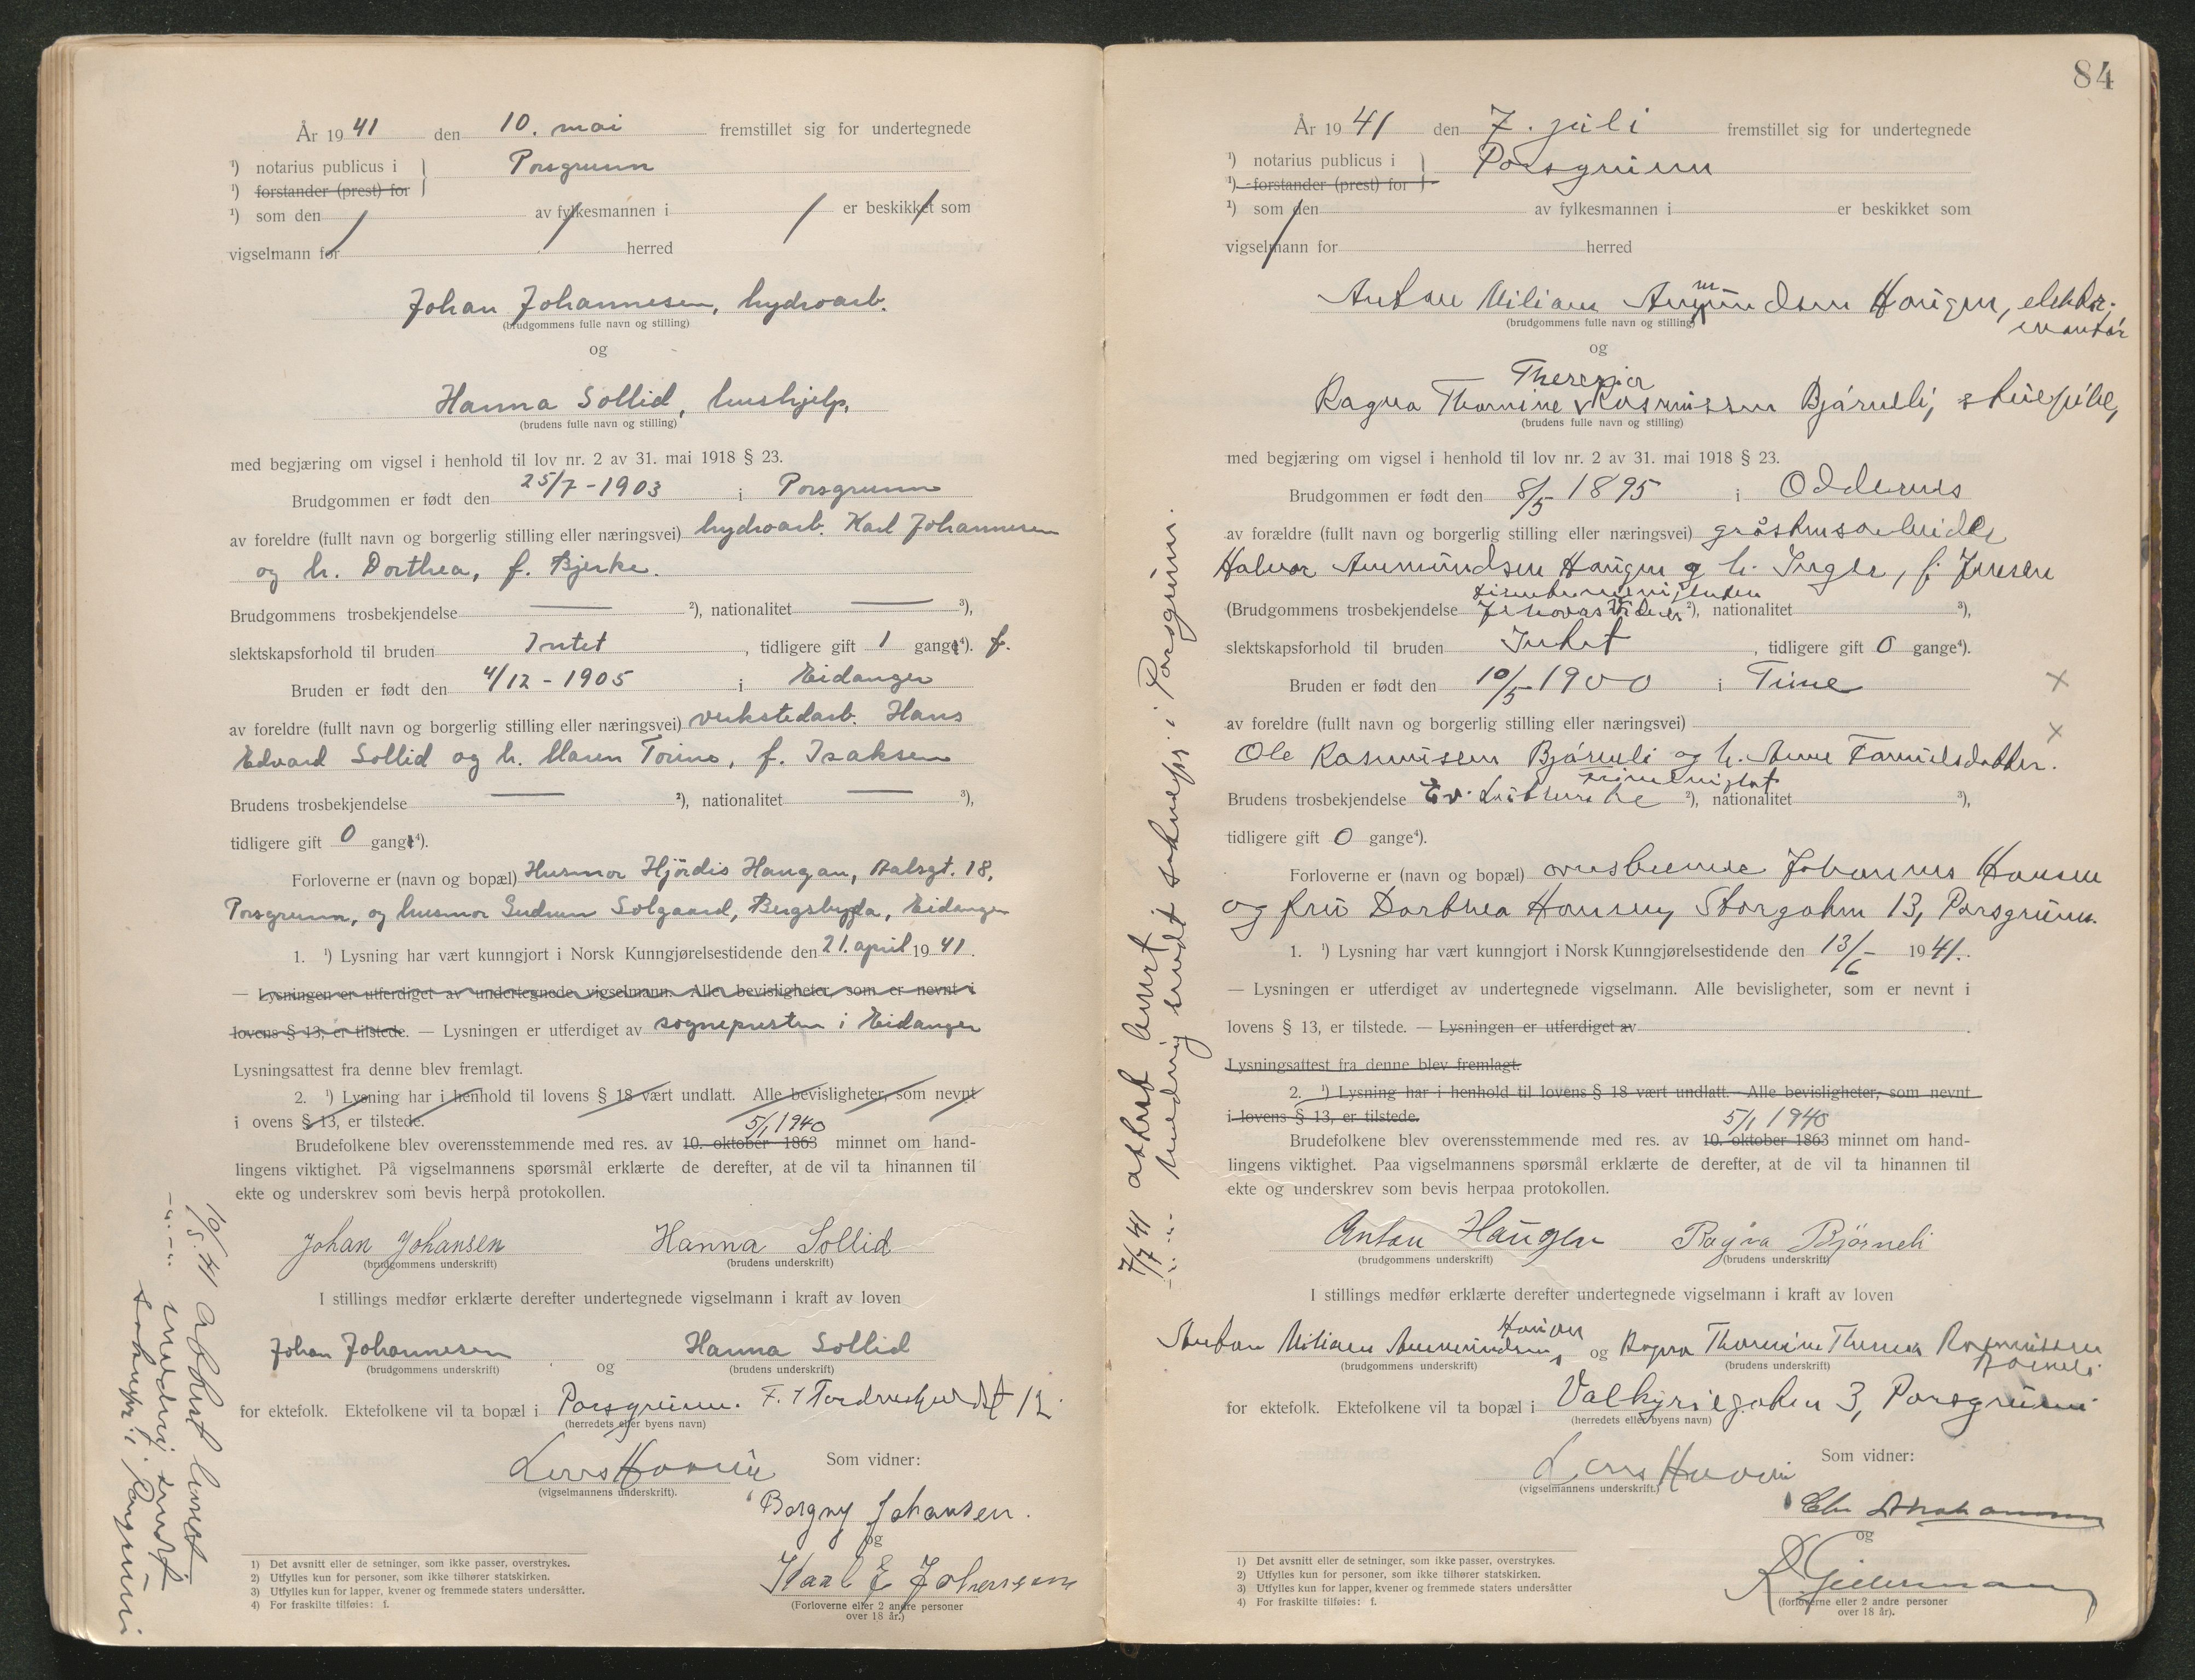 År 1941 den 10. mai fremstillet sig for undertegnede
¹) notarius publicus i } Porsgrunn
¹) forstander (prest) for
¹) som den av fylkesmannen i er beskikket som
vigselmann for herred
Johan Johannesen, hydroarb.
(brudgommens fulle navn og stilling)
og
Hanna Sollid, hushjelp,
(brudens fulle navn og stilling)
med begjæring om vigsel i henhold til lov nr. 2 av 31. mai 1918 § 23.
Brudgommen er født den 25/7 - 1903 i Porsgrunn
av foreldre (fullt navn og borgerlig stilling eller næringsvei) hydroarb. Karl Johannesen
og h. Dorthea, f. Bjerke.
Brudgommens trosbekjendelse — ²), nationalitet — ³),
slektskapsforhold til bruden Intet, tidligere gift 1 gang⁴). f.
Bruden er født den 4/12 - 1905 i Eidanger
av foreldre (fullt navn og borgerlig stilling eller næringsvei) verkstedarb. Hans
Edvard Sollid og h. Maren Torine, f. Isaksen
Brudens trosbekjendelse — ²), nationalitet — ³),
tidligere gift 0 gang⁴).
Forloverne er (navn og bopæl) Husmor Hjördis Haugan, Aalsgt. 18,
Porsgrunn, og husmor Gudrun Solgaard, Bergsbygda, Eidanger
1. ¹) Lysning har vært kunngjort i Norsk Kunngjørelsestidende den 21. april 1941.
— Lysningen er utferdiget av undertegnede vigselmann. Alle bevisligheter, som er nevnt i
lovens § 13, er tilstede. — Lysningen er utferdiget av sognepresten i Eidanger
Lysningsattest fra denne blev fremlagt.
2. ¹) Lysning har i henhold til lovens § 18 vært undlatt. Alle bevisligheter, som nevnt
i ovens § 13, er tilstede.
5/1 1940
Brudefolkene blev overensstemmende med res. av 10. oktober 1863 minnet om hand-
lingens viktighet. På vigselmannens spørsmål erklærte de derefter, at de vil ta hinannen til
ekte og underskrev som bevis herpå protokollen.
Johan Johansen Hanna Sollid
(brudgommens underskrift) (brudens underskrift)
I stillings medfør erklærte derefter undertegnede vigselmann i kraft av loven
Johan Johannesen og Hanna Sollid
(brudgommens underskrift) (brudens underskrift)
for ektefolk. Ektefolkene vil ta bopæl i Porsgrunn. 12
(herredets eller byens navn)
Som vidner:
(vigselmannens underskrift).
Borgny Johansen.
og
Karl E Johansen
(Forloverne eller 2 andre personer
over 18 år.)
1) Det avsnitt eller de setninger, som ikke passer, overstrykes.
2) Utfylles kun for personer, som ikke tilhører statskirken.
3) Utfylles kun for lapper, kvener og fremmede staters undersåtter.
4) For fraskilte tilføies: f.
10/5.41 attest levert
-"-"- melding sendt
sokneprt. i Porsgrunn
84
År 1941 den 7. juli fremstillet sig for undertegnede
¹) notarius publicus i } Porsgrunn
¹) forstander (prest) for
¹) som den av fylkesmannen i er beskikket som
vigselmann for herred
Anton Miliam Ammundsen Haugen, elektr.
montör
(brudgommens fulle navn og stilling)
og
Theresia
Ragna Thomine Rasmussen Bjørneli,
(brudens fulle navn og stilling)
med begjæring om vigsel i henhold til lov nr. 2 av 31. mai 1918 § 23.
Brudgommen er født den 8/5 1895 i Oddernes
av forældre (fullt navn og borgerlig stilling eller næringsvei) gråstensarbeider
Halvor Ammundsen Haugen og h. Inger, f. Jensen
(Brudgommens trosbekjendelse Jehovas Vidner ²), nationalitet ³),
slektskapsforhold til bruden Intet, tidligere gift 0 gange⁴).
Bruden er født den 10/5 1900 i Time
av foreldre (fullt navn og borgerlig stilling eller næringsvei)
Ole Rasmussen Bjørneli og h. Anne Tarmelsdatter.
Brudens trosbekjendelse Ev. Lutherske ²), nationalitet ³),
tidligere gift 0 gange⁴).
Forloverne er (navn og bopæl) Johannes Hansen
og fru Dorthea Hansen, Storgaten 13, Porsgrunn.
1. ¹) Lysning har vært kunngjort i Norsk Kunngjørelsestidende den 13/6 1941.
— Lysningen er utferdiget av undertegnede vigselmann. Alle bevisligheter, som er nevnt i
lovens § 13, er tilstede. — Lysningen er utferdiget av
Lysningsattest fra denne blev fremlagt.
2. ¹) Lysning har i henhold til lovens § 18 vært undlatt. Alle bevisligheter, som nevnt
i lovens § 13, er tilstede.
5/1 1940
Brudefolkene blev overensstemmende med res. av 10. oktober 1863 minnet om hand-
lingens viktighet. Paa vigselmannens spørsmål erklærte de derefter, at de vil ta hinannen til
ekte og underskrev som bevis herpaa protokollen.
Anton Haugen Ragna Bjørneli
(brudgommens underskrift) (brudens underskrift)
I stillings medfør erklærte derefter undertegnede vigselmann i kraft av loven
Haugen
Anton Miliam Ammundsen og Ragna Thomine Theresia Rasmussen
Bjørneli
(brudgommens underskrift) (brudens underskrift)
for ektefolk. Ektefolkene vil ta bopæl i Valkyriegaten 3, Porsgrunn
(herredets eller byens navn)
Som vidner:
(vigselmannens underskrift.)
og
(forloverne eller 2 andre personer
over 18 år).
1) Det avsnitt eller de setninger, som ikke passer, overstrykes.
2) Utfylles kun for personer, som ikke tilhører statskirken.
3) Utfylles kun for lapper, kvener og fremmede staters undersåtter
4) For fraskilte tilføies: f.
7/7 41 attest levert
-"-"- melding sendt soknepr. i Porsgrunn.